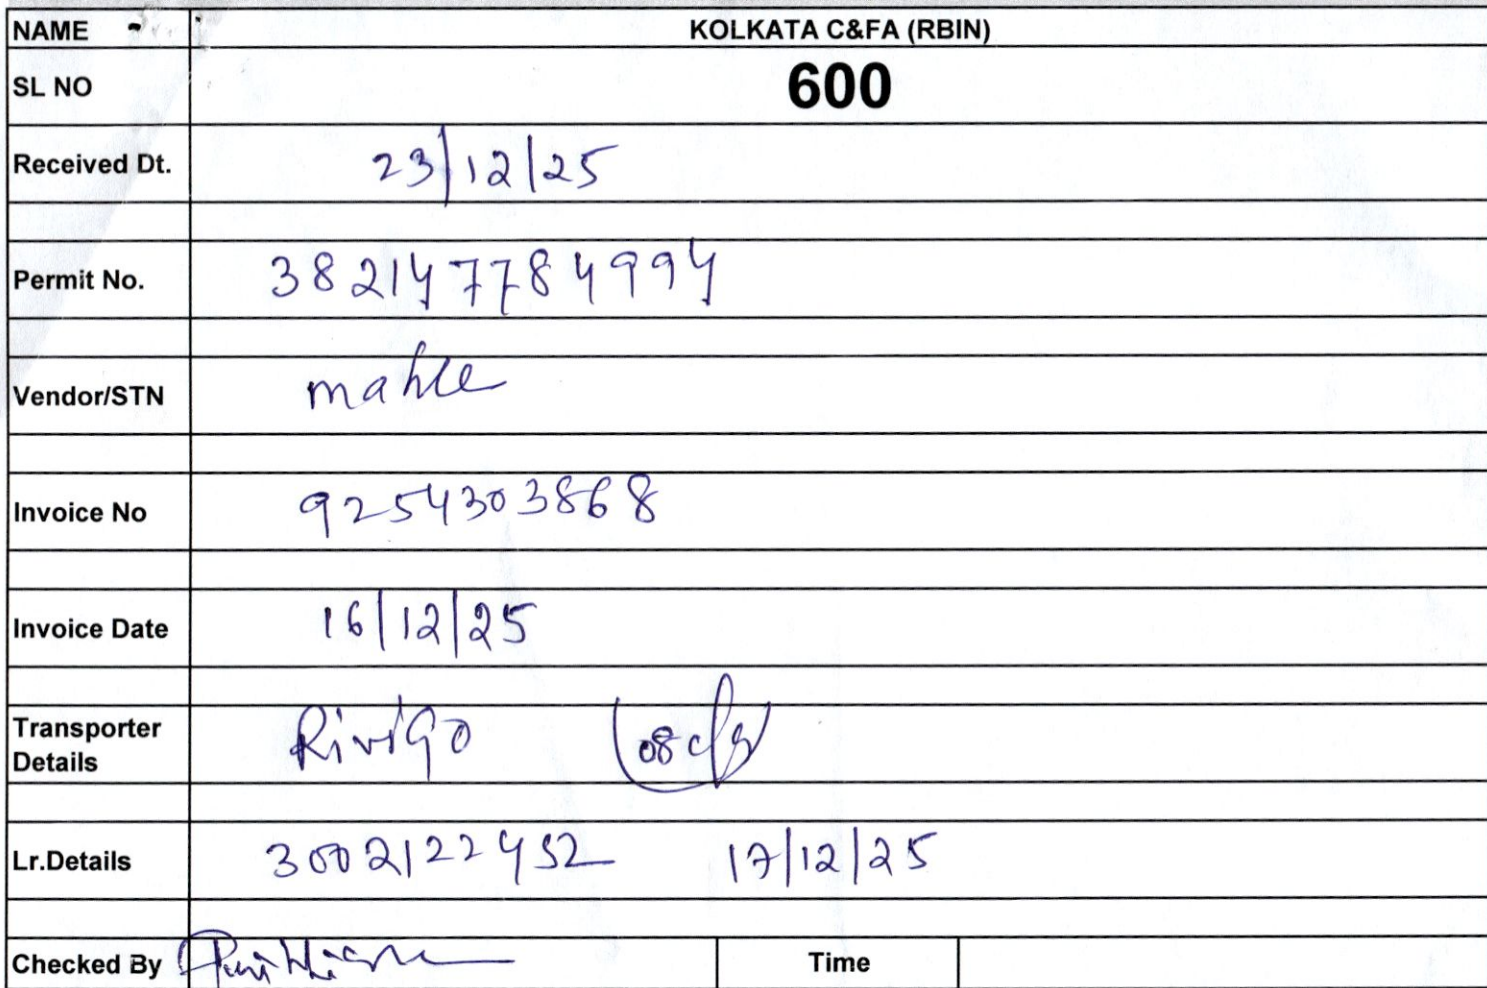 NAME KOLKATA C&FA (RBIN)
SL NO 600
Received Dt. 23/12/25
Permit No. 382147784994
Vendor/STN mahle
Invoice No 9254303868
Invoice Date 16/12/25
Transporter Details RiviGo (08 c/s)
Lr.Details 3002122452 17/12/25
Checked By Time